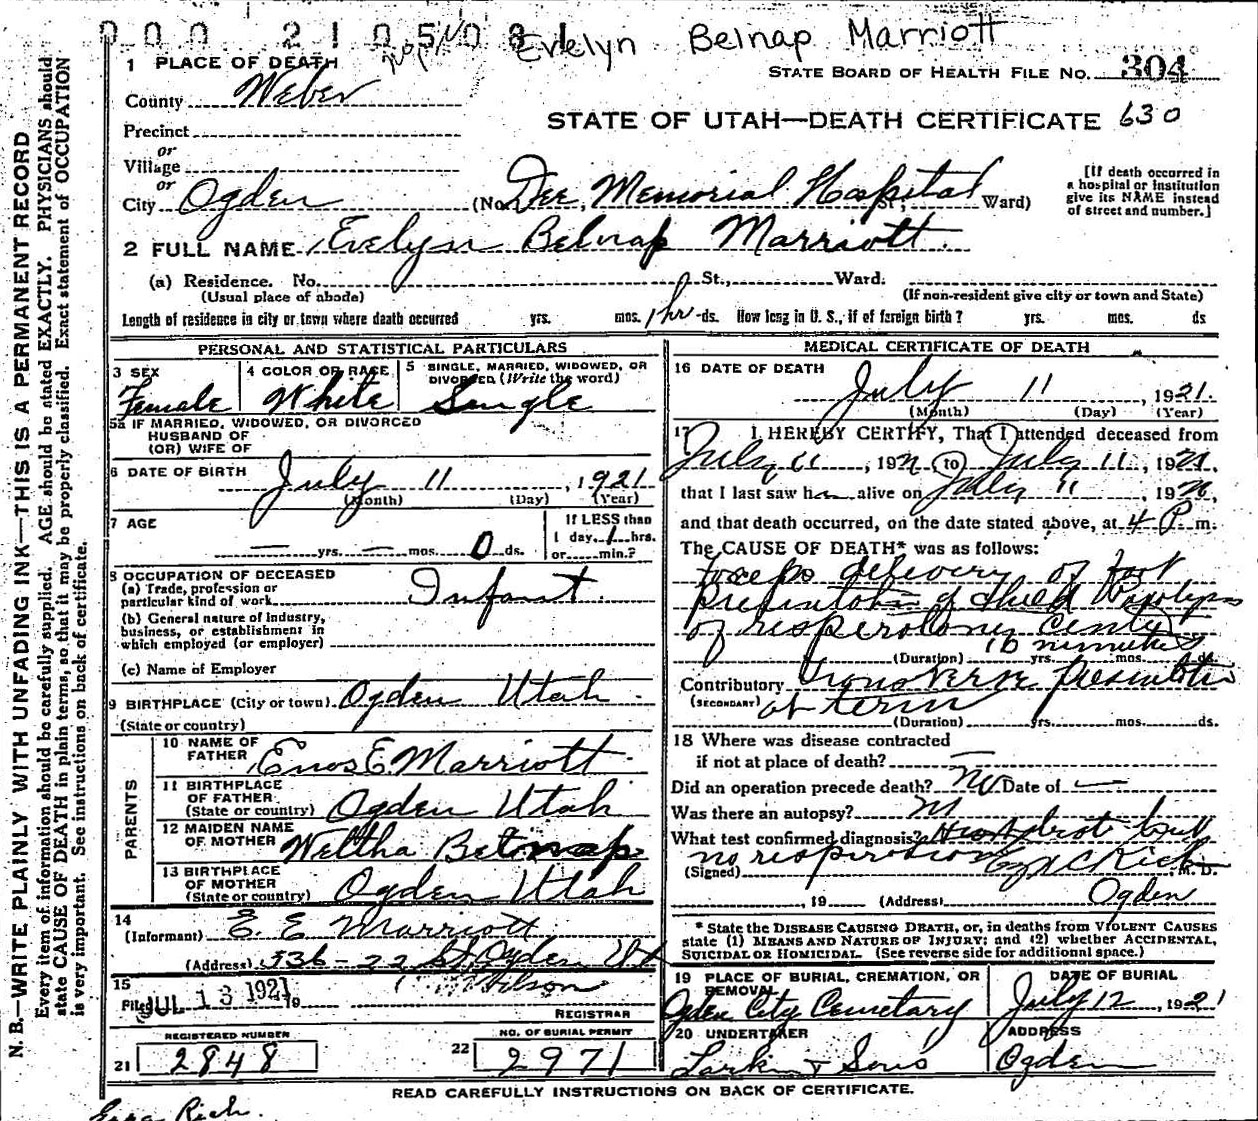 000 210503 1
Evelyn Belnap Marriott
1 PLACE OF DEATH
STATE BOARD OF HEALTH FILE NO. 304
County Weber
STATE OF UTAH—DEATH CERTIFICATE 630
Precinct
or
Village
or
City Ogden (No. Dee Memorial Hospital St., Ward)
[If death occurred in
a hospital or institution
give its NAME instead
of street and number.]
2 FULL NAME Evelyn Belnap Marriott
(a) Residence. No. St., Ward.
(Usual place of abode) (If non-resident give city or town and State)
Length of residence in city or town where death occurred yrs. mos. 1 hr ds. How long in U. S., if of foreign birth? yrs. mos. ds
PERSONAL AND STATISTICAL PARTICULARS
3 SEX Female
4 COLOR OR RACE White
5 SINGLE, MARRIED, WIDOWED, OR
DIVORCED (Write the word)
Single
5a IF MARRIED, WIDOWED, OR DIVORCED
HUSBAND OF
(OR) WIFE OF
6 DATE OF BIRTH July 11, 1921
(Month) (Day) (Year)
7 AGE — yrs. — mos. 0 ds.
If LESS than
1 day, 1 hrs.
or min.?
8 OCCUPATION OF DECEASED
(a) Trade, profession or
particular kind of work Infant
(b) General nature of industry,
business, or establishment in
which employed (or employer)
(c) Name of Employer
9 BIRTHPLACE (City or town) Ogden Utah
(State or country)
PARENTS
10 NAME OF
FATHER Enos E. Marriott
11 BIRTHPLACE
OF FATHER
(State or country) Ogden Utah
12 MAIDEN NAME
OF MOTHER Weltha Belnap
13 BIRTHPLACE
OF MOTHER
(State or country) Ogden Utah
14
(Informant) E. E. Marriott
(Address) 536 - 22 St. Ogden Ut
15
Filed JUL 13 1921 19 Wilson
REGISTRAR
REGISTERED NUMBER
21 2848
NO. OF BURIAL PERMIT
22 2971
MEDICAL CERTIFICATE OF DEATH
16 DATE OF DEATH
July 11, 1921.
(Month) (Day) (Year)
17 I HEREBY CERTIFY, That I attended deceased from
July 11, 1921, to July 11, 1921,
that I last saw her alive on July 11, 1921,
and that death occurred, on the date stated above, at 4 P m.
The CAUSE OF DEATH* was as follows:
Forceps delivery of foot
presentation of child
of respiratory center
(Duration) yrs. mos. ds.
10 minutes
Contributory Transverse presentation
(SECONDARY) at term
(Duration) yrs. mos. ds.
18 Where was disease contracted
if not at place of death? —
Did an operation precede death? No Date of —
Was there an autopsy?
What test confirmed diagnosis? Heart beat but
no respiration
(Signed) Rich M. D.
, 19 (Address) Ogden
* State the DISEASE CAUSING DEATH, or, in deaths from VIOLENT CAUSES
state (1) MEANS AND NATURE OF INJURY; and (2) whether ACCIDENTAL,
SUICIDAL OR HOMICIDAL. (See reverse side for additional space.)
19 PLACE OF BURIAL, CREMATION, OR
REMOVAL
Ogden City Cemetary
DATE OF BURIAL
July 12, 1921
20 UNDERTAKER
Larkin & Sons
ADDRESS
Ogden
READ CAREFULLY INSTRUCTIONS ON BACK OF CERTIFICATE.
Ezra Rich.
N. B.—WRITE PLAINLY WITH UNFADING INK—THIS IS A PERMANENT RECORD
Every item of information should be carefully supplied. AGE should be stated EXACTLY. PHYSICIANS should
state CAUSE OF DEATH in plain terms, so that it may be properly classified. Exact statement of OCCUPATION
is very important. See instructions on back of certificate.